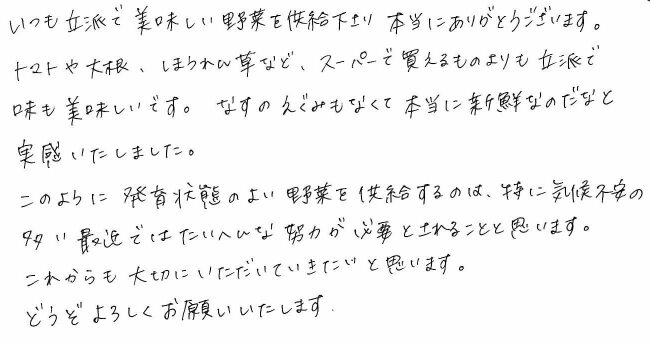 いつも立派で美味しい野菜を供給下さり本当にありがとうございます。
トマトや大根、ほうれん草など、スーパーで買えるものよりも立派で
味も美味しいです。なすのえぐみもなくて本当に新鮮なのだなと
実感いたしました。
このように発育状態のよい野菜を供給するのは、特に気候不安の
多い最近ではたいへんな努力が必要とされることと思います。
これからも大切にいただいていきたいと思います。
どうぞよろしくお願いいたします.